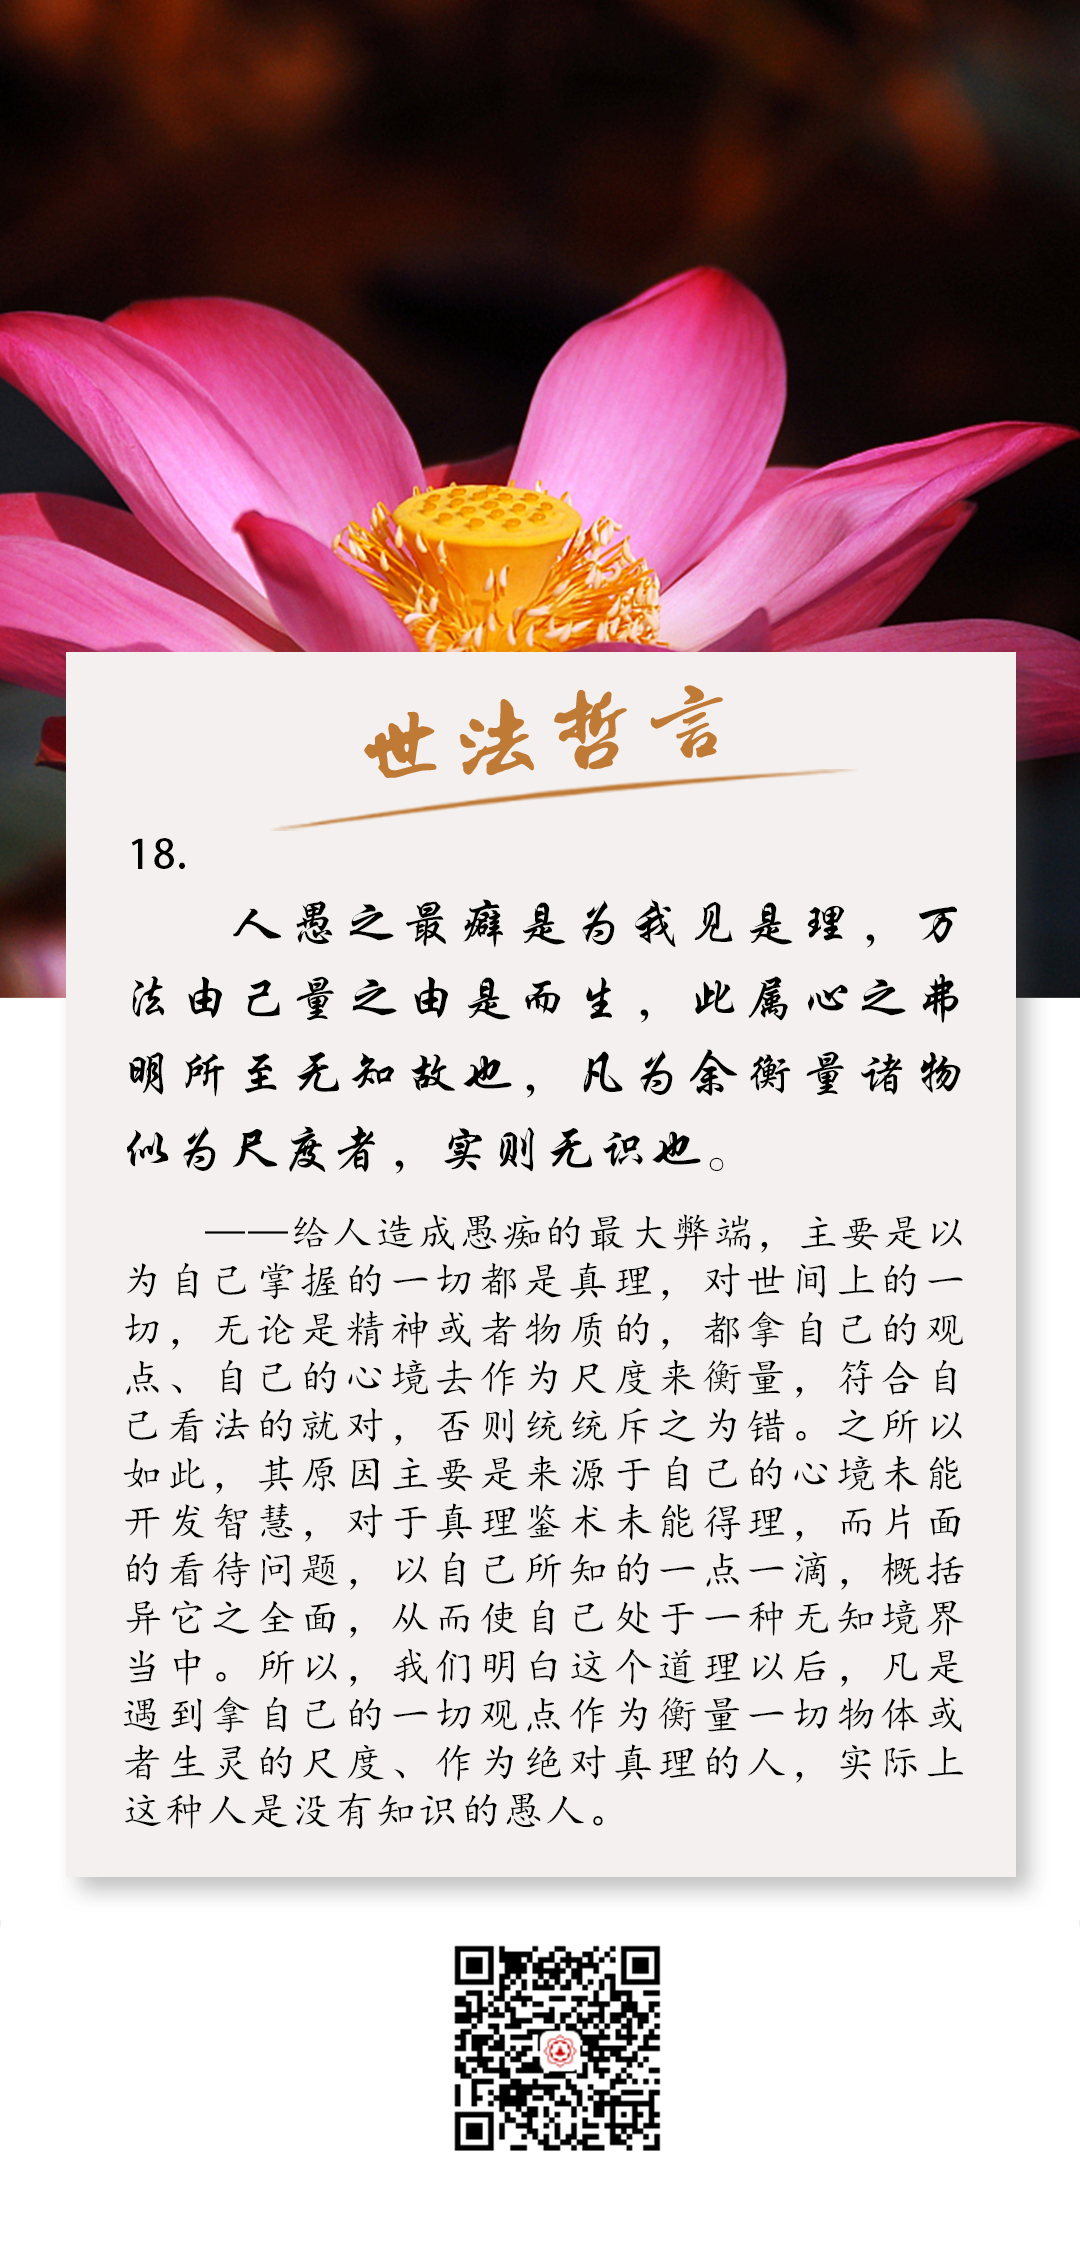 世法哲言
18.
人愚之最癖是为我见是理，万
法由己量之由是而生，此属心之弗
明所至无知故也，凡为余衡量诸物
似为尺度者，实则无识也。
——给人造成愚痴的最大弊端，主要是以
为自己掌握的一切都是真理，对世间上的一
切，无论是精神或者物质的，都拿自己的观
点、自己的心境去作为尺度来衡量，符合自
己看法的就对，否则统统斥之为错。之所以
如此，其原因主要是来源于自己的心境未能
开发智慧，对于真理鉴术未能得理，而片面
的看待问题，以自己所知的一点一滴，概括
异它之全面，从而使自己处于一种无知境界
当中。所以，我们明白这个道理以后，凡是
遇到拿自己的一切观点作为衡量一切物体或
者生灵的尺度、作为绝对真理的人，实际上
这种人是没有知识的愚人。